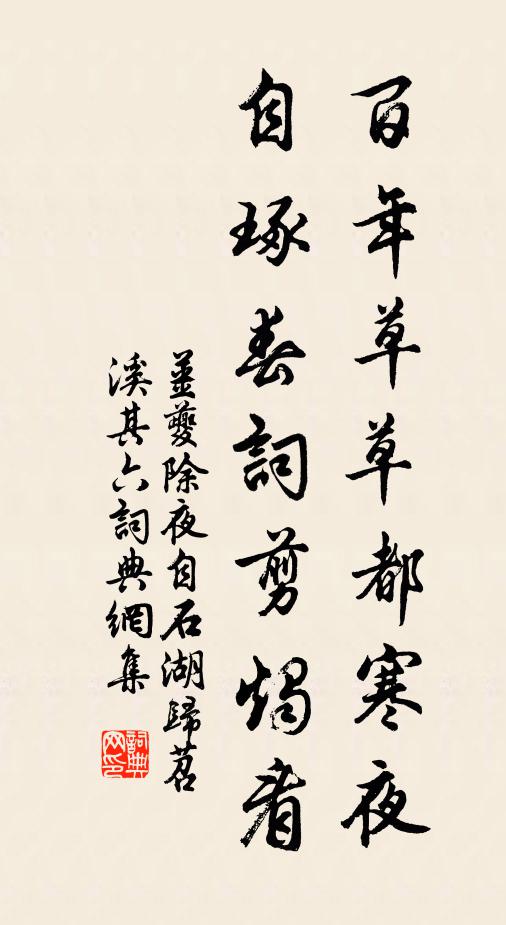 百年草草都寒夜
自琢春詞剪燭看
薑夔除夜自石湖歸苕
溪其六詞典網集
詞典
网印